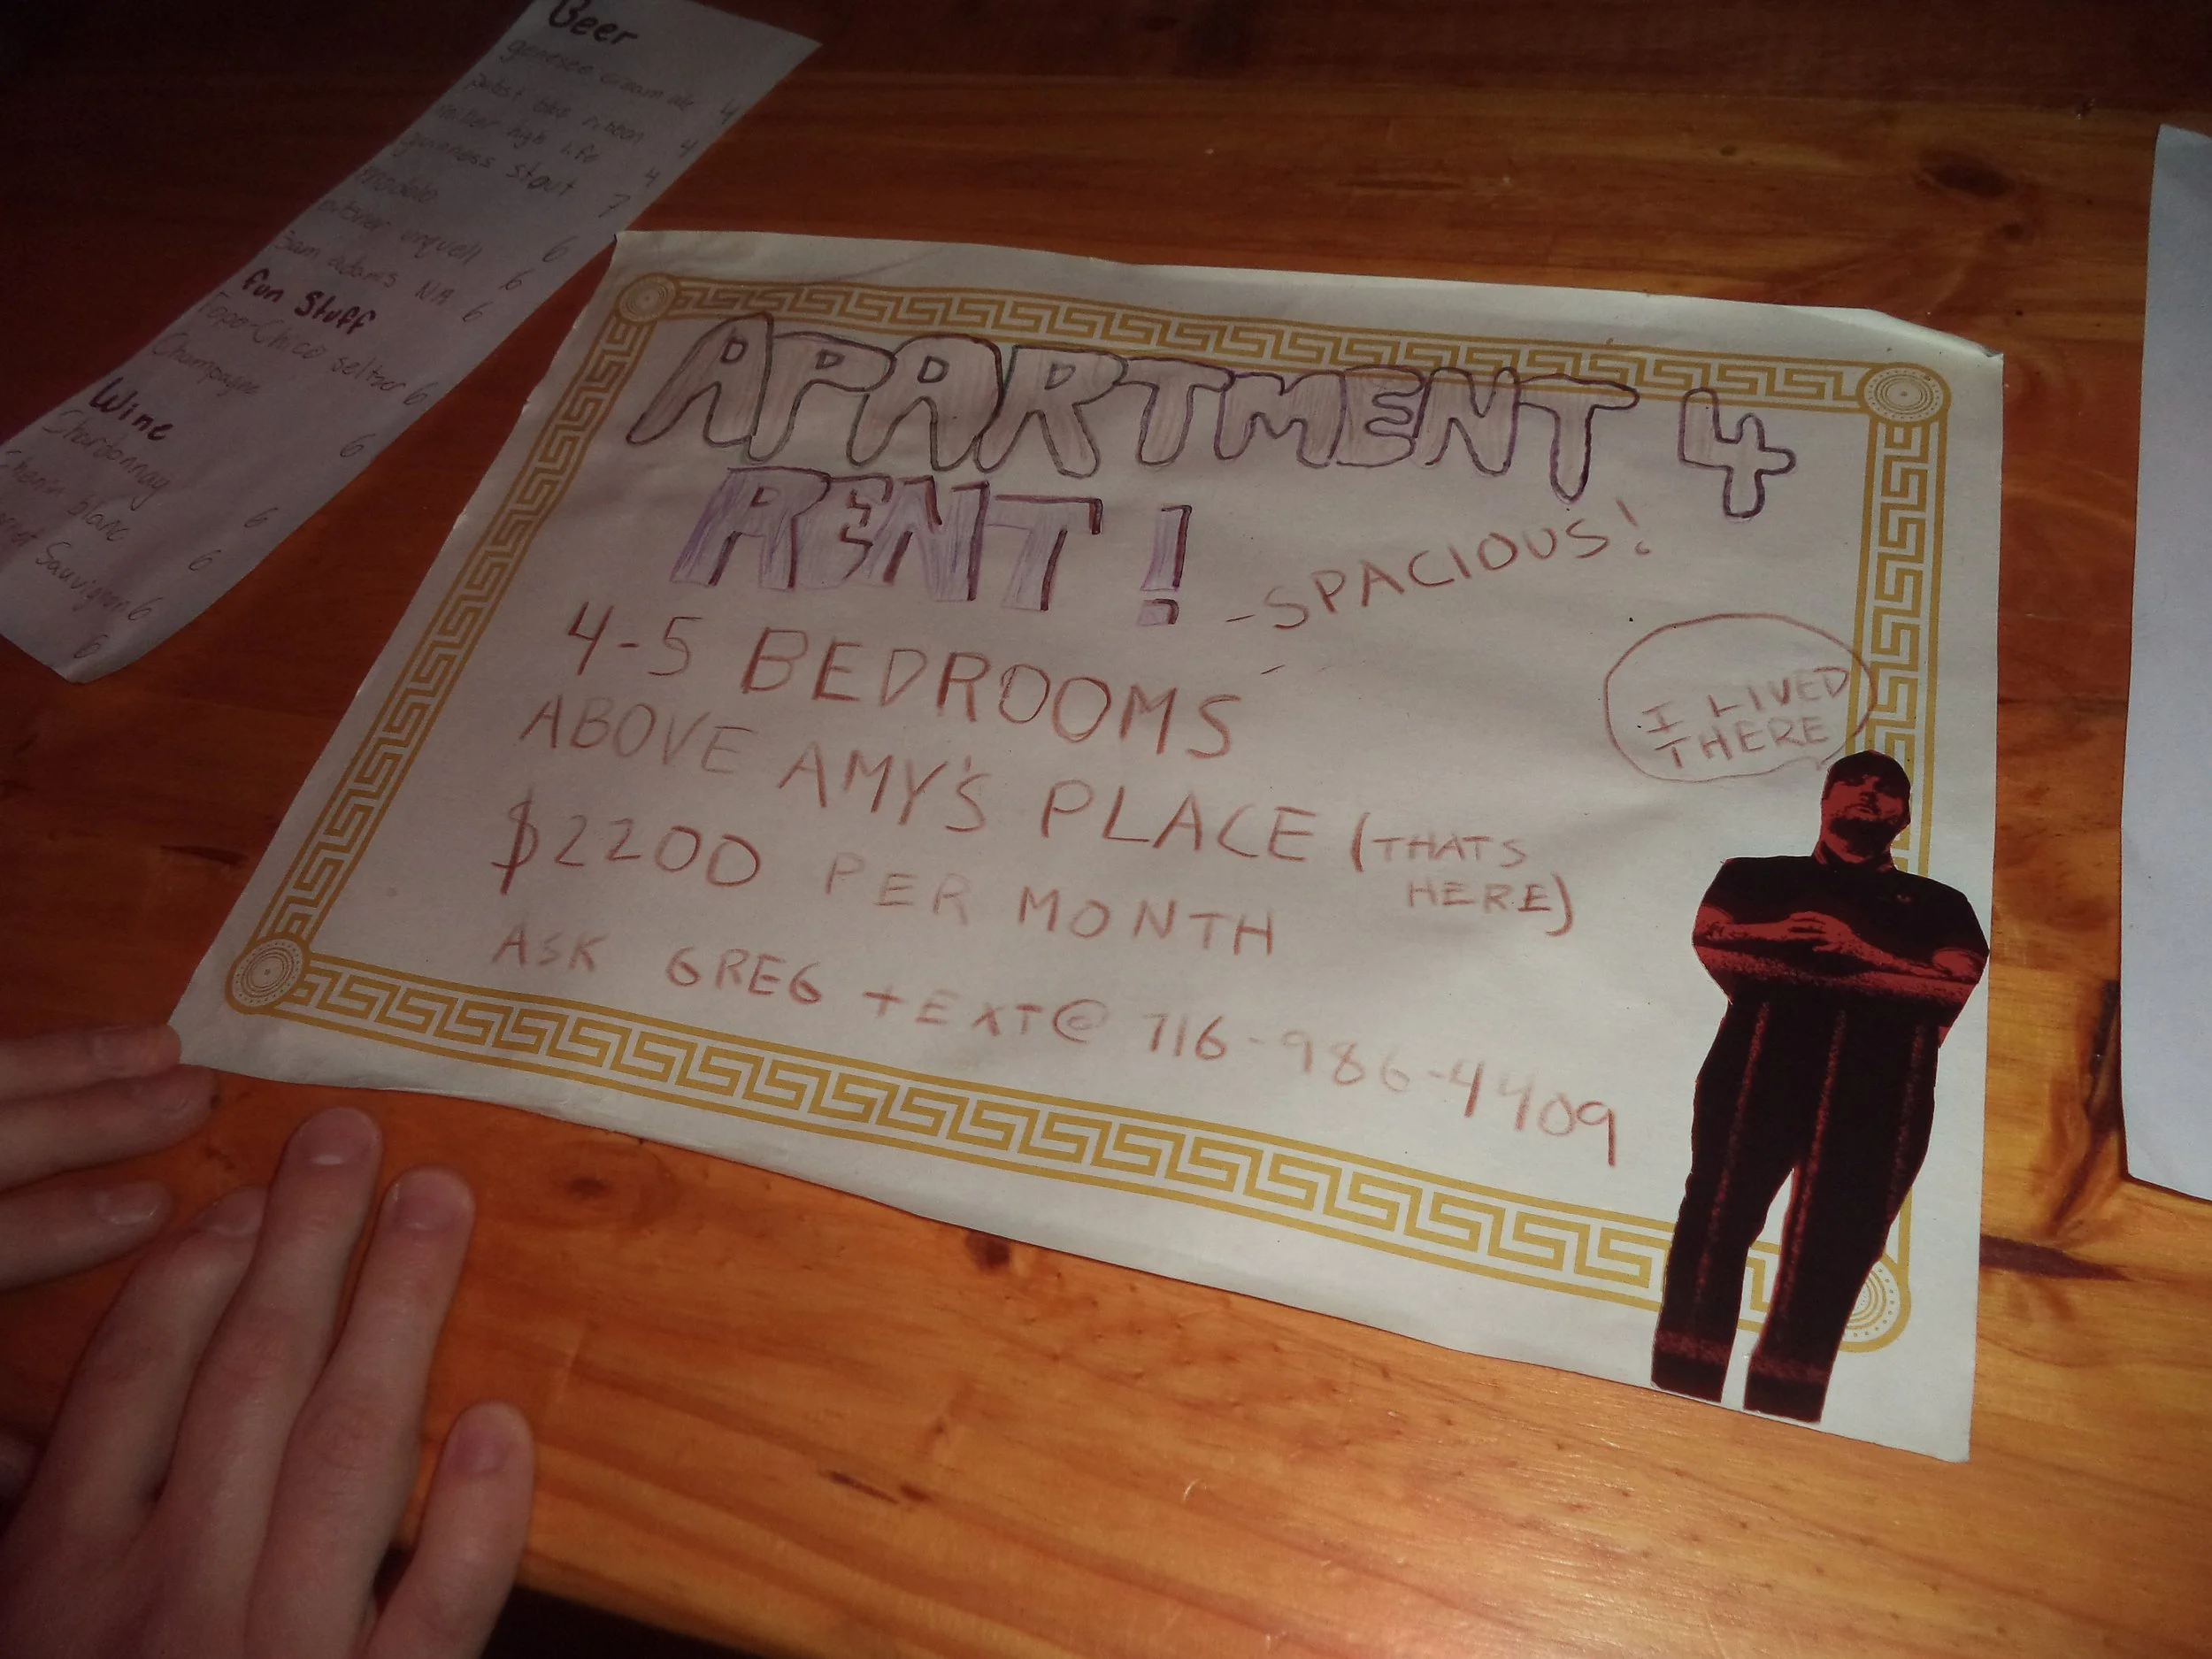 Beer
genesee cream ale 4
pabst blue ribbon 4
miller high life 4
guinness stout 7
modelo 6
pilsner urquell 6
Sam adams NA 6
fun Stuff
Topo-Chico seltzer 6
Champagne 6
Wine
Chardonnay 6
Chenin blanc 6
Sauvignon 6
6
APARTMENT 4
RENT!
-SPACIOUS!
4-5 BEDROOMS
ABOVE AMY'S PLACE (THATS
HERE)
$2200 PER MONTH
ASK GREG TEXT@ 716-986-4409
I LIVED
THERE